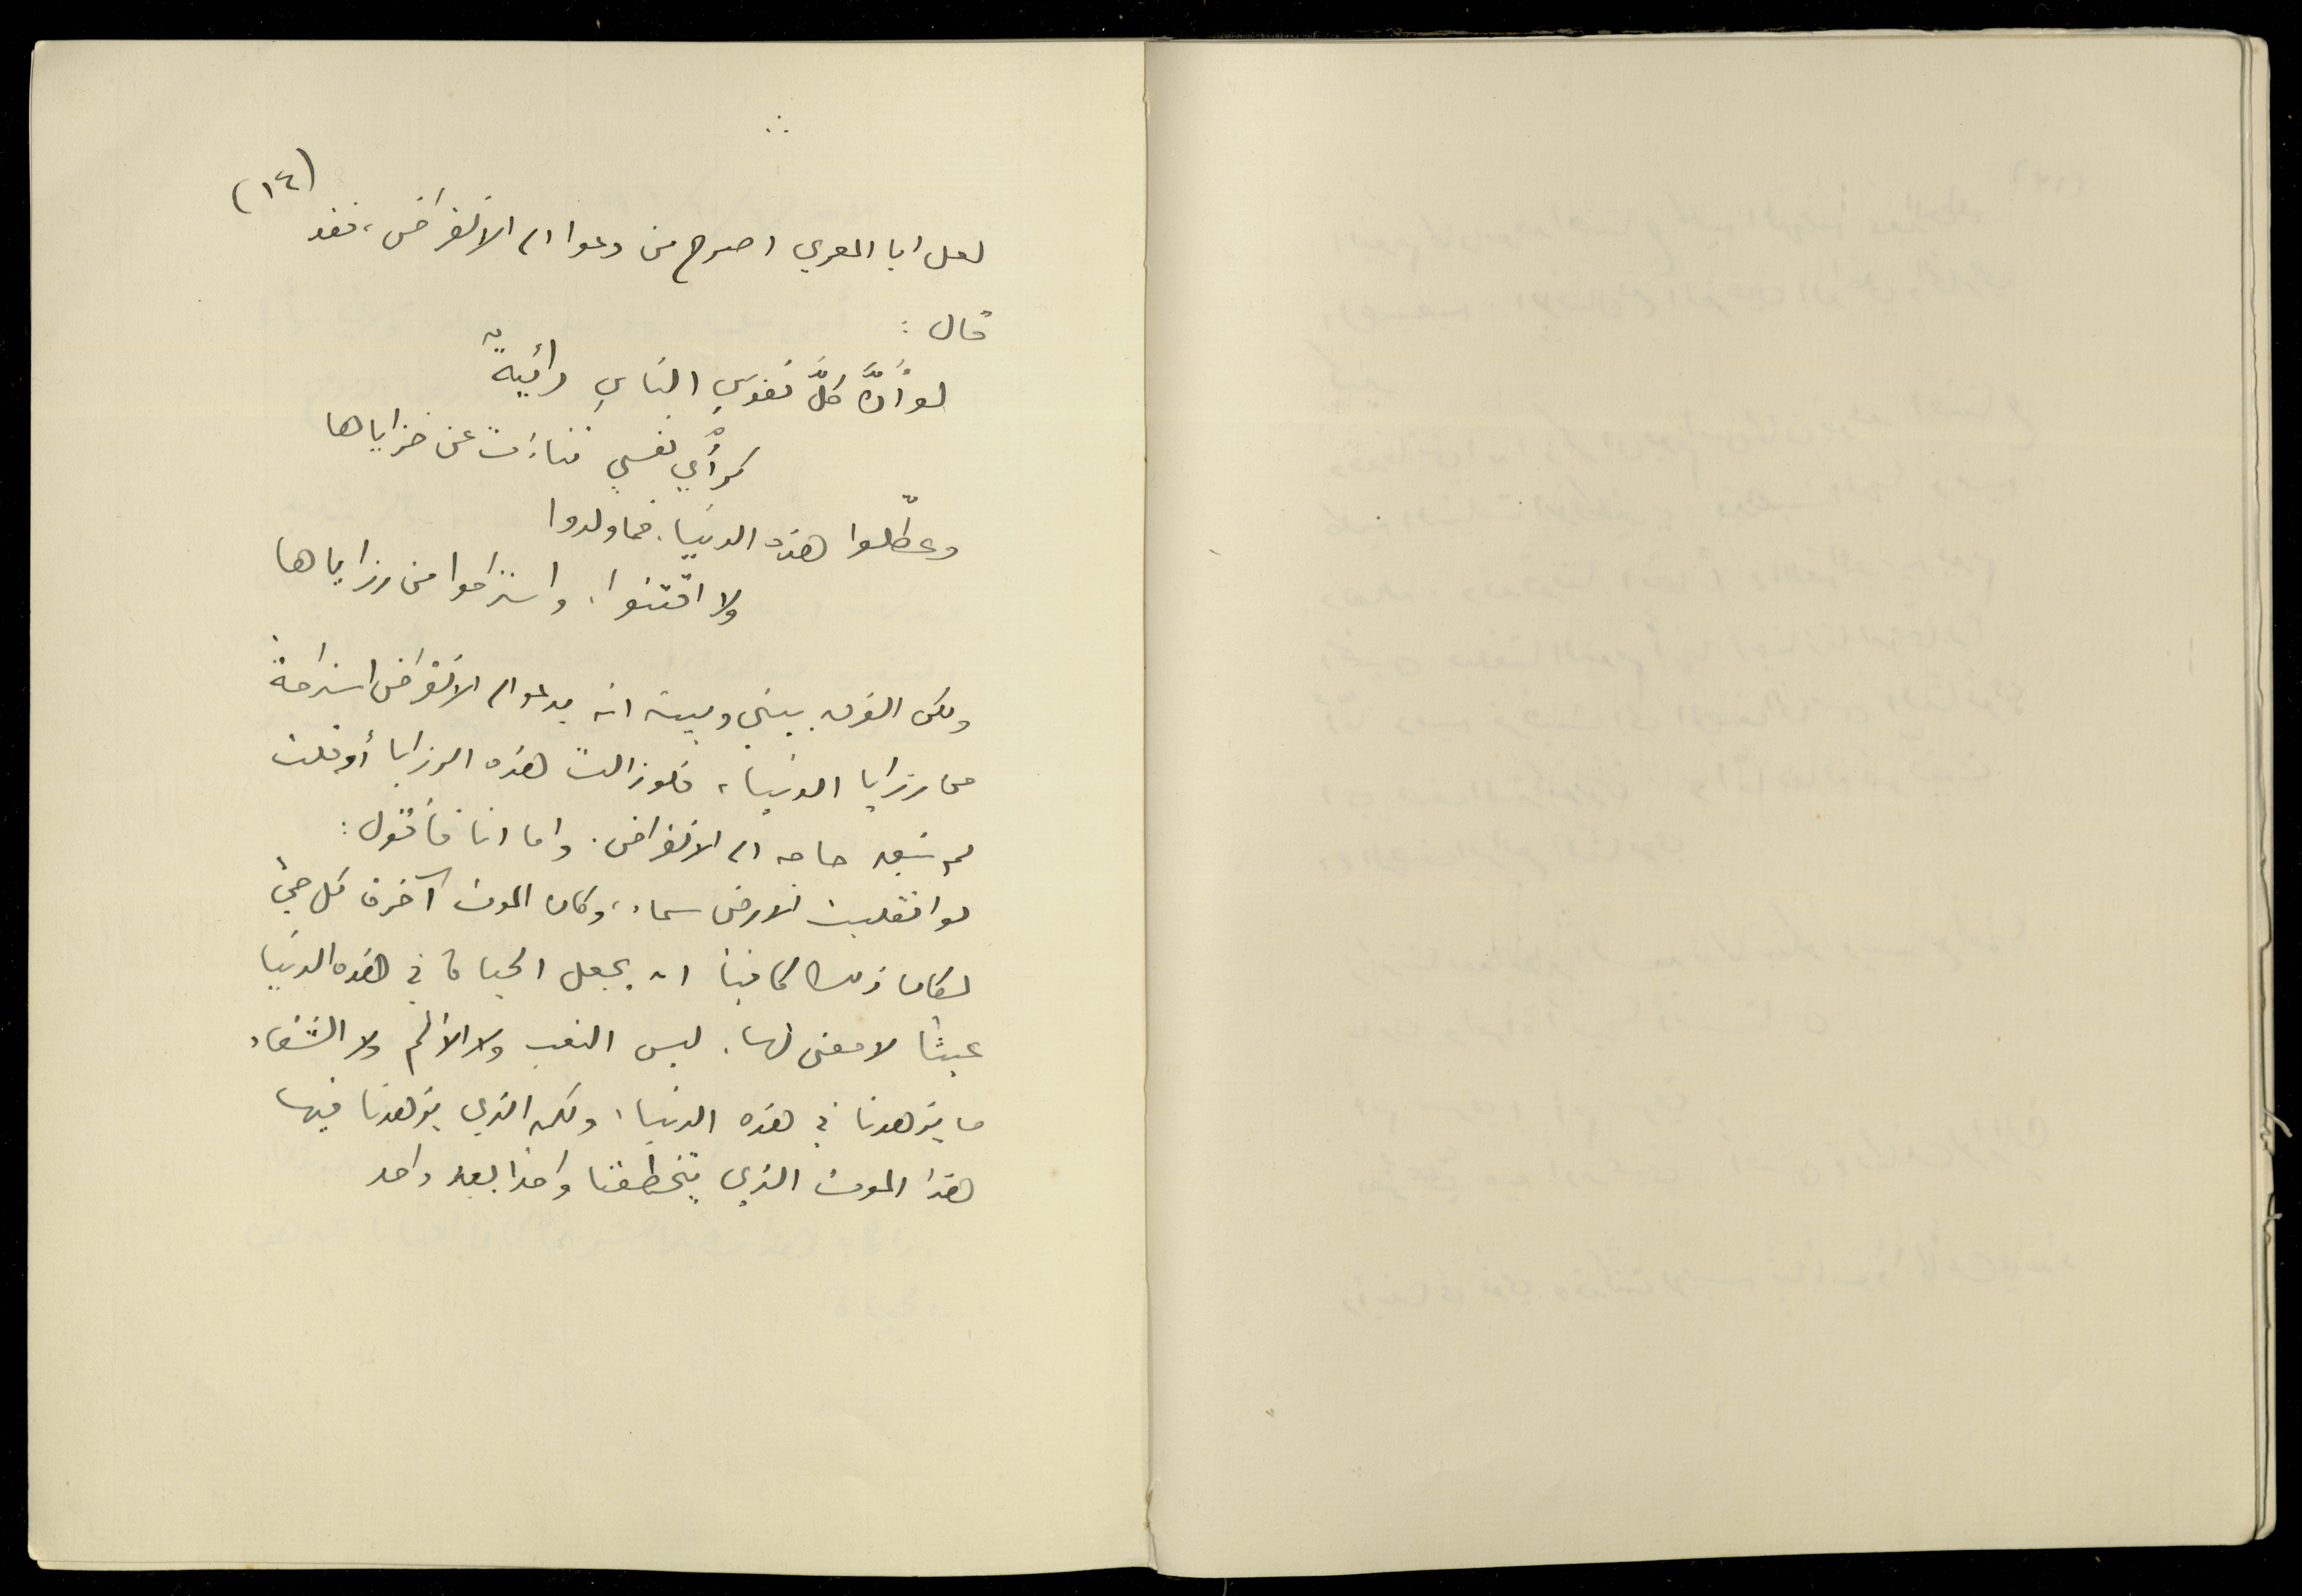 (١٤)
لعل ابا المعري اصرح من دعوا الى الانقراض، فقد
قال:
لو أنَّ كلَّ نفوسِ الناسِ رائيةٌ
كرأْيِ نفسي تناءَت عن خزاياها
وعطّلوا هذه الدنيا. فما ولدوا
ولا اقتنوا. واستراحوا من رزاياها
ولكن الفرق بيني وبينه انه يدعو الى الانقراض استراحةً
من رزايا الدنيا، فلو زالت هذه الرزايا أو قلت
لم تبق حاجه الى الانقراض. واما انا فأقول:
لو انقلبت الارض سماء، وكان الموت آخرة كل حيّ
لكان ذلك كافيا ان يجعل الحياة في هذه الدنيا
عبثا لا معنى لها. ليس التعب ولا الألم ولا الشقاء
ما يزهدنا في هذه الدنيا، ولكن الذي يزهدنا فيها
هذا الموت الذي يتخطفنا واحدا بعد واحد